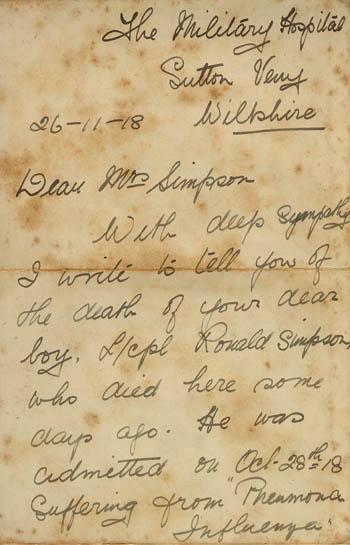 The Military Hospital
Sutton Veny
Wiltshire
26-11-18
Dear Mrs Simpson
With deep sympathy
I write to tell you of
the death of your dear
boy, L/cpl Ronald Simpson,
who died here some
days ago. He was
admitted on Oct-28th-18
Suffering from "Pneumonia
Influenza"